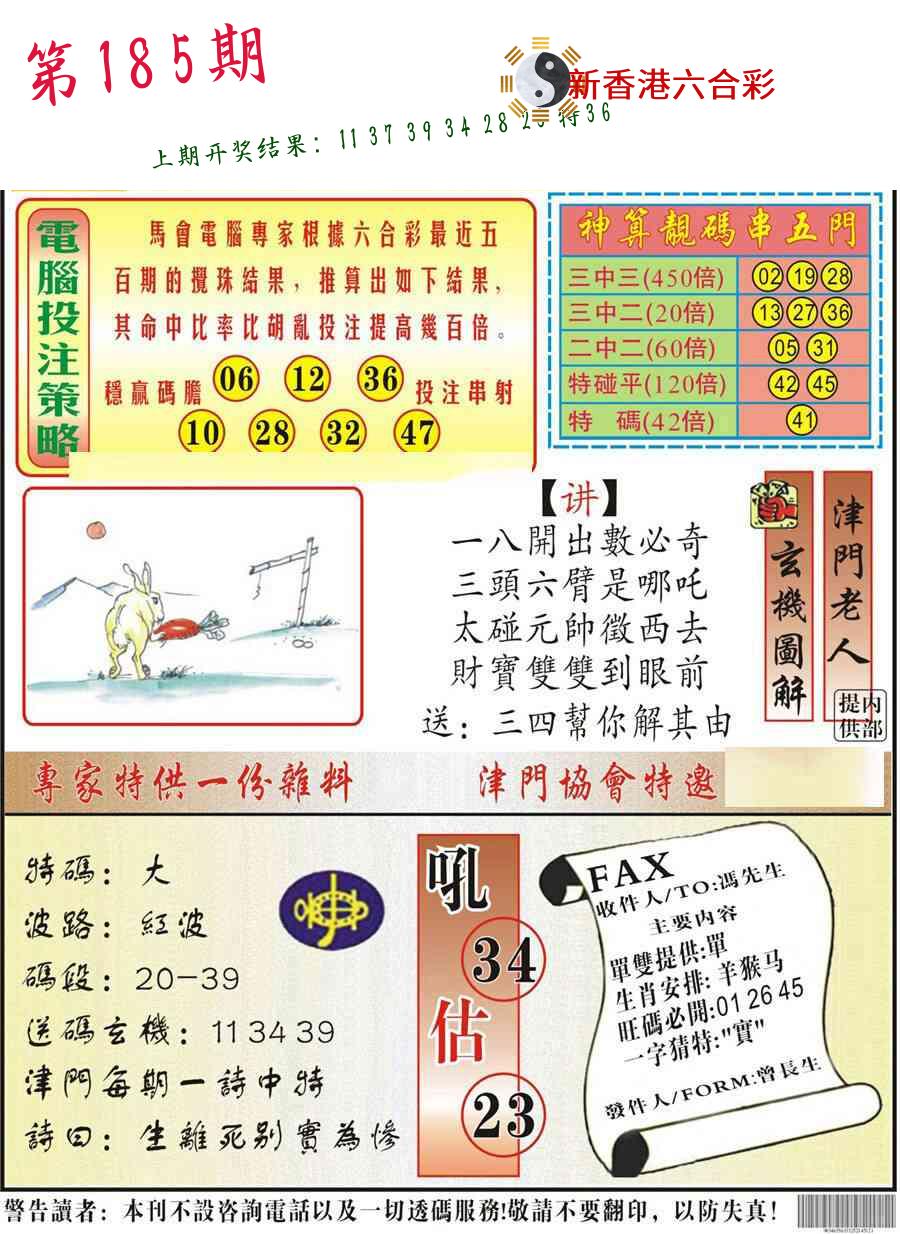 第185期
新香港六合彩
上期开奖结果：11 37 39 34 28 特36
電腦投注策略
馬會電腦專家根據六合彩最近五
百期的攪珠結果，推算出如下結果，
其命中比率比胡亂投注提高幾百倍。
穩贏碼膽 06 12 36 投注串射
10 28 32 47
神算靚碼串五門
三中三(450倍) 02 19 28
三中二(20倍) 13 27 36
二中二(60倍) 05 31
特碰平(120倍) 42 45
特 碼(42倍) 41
【讲】
一八開出數必奇
三頭六臂是哪吒
太碰元帥徵西去
財寶雙雙到眼前
送：三四幫你解其由
玄機圖解
津門老人
内部提供
專家特供一份雜料
津門協會特邀
特碼：大
波路：紅波
碼段：20-39
送碼玄機：11 34 39
津門每期一詩中特
詩曰：生離死别實為慘
吼
34
估
23
FAX
收件人/TO:馮先生
主要内容
單雙提供:單
生肖安排: 羊猴马
旺碼必開:01 26 45
一字猜特:"實"
發件人/FORM:曾長生
警告讀者：本刊不設咨詢電話以及一切透碼服務!敬請不要翻印，以防失真！